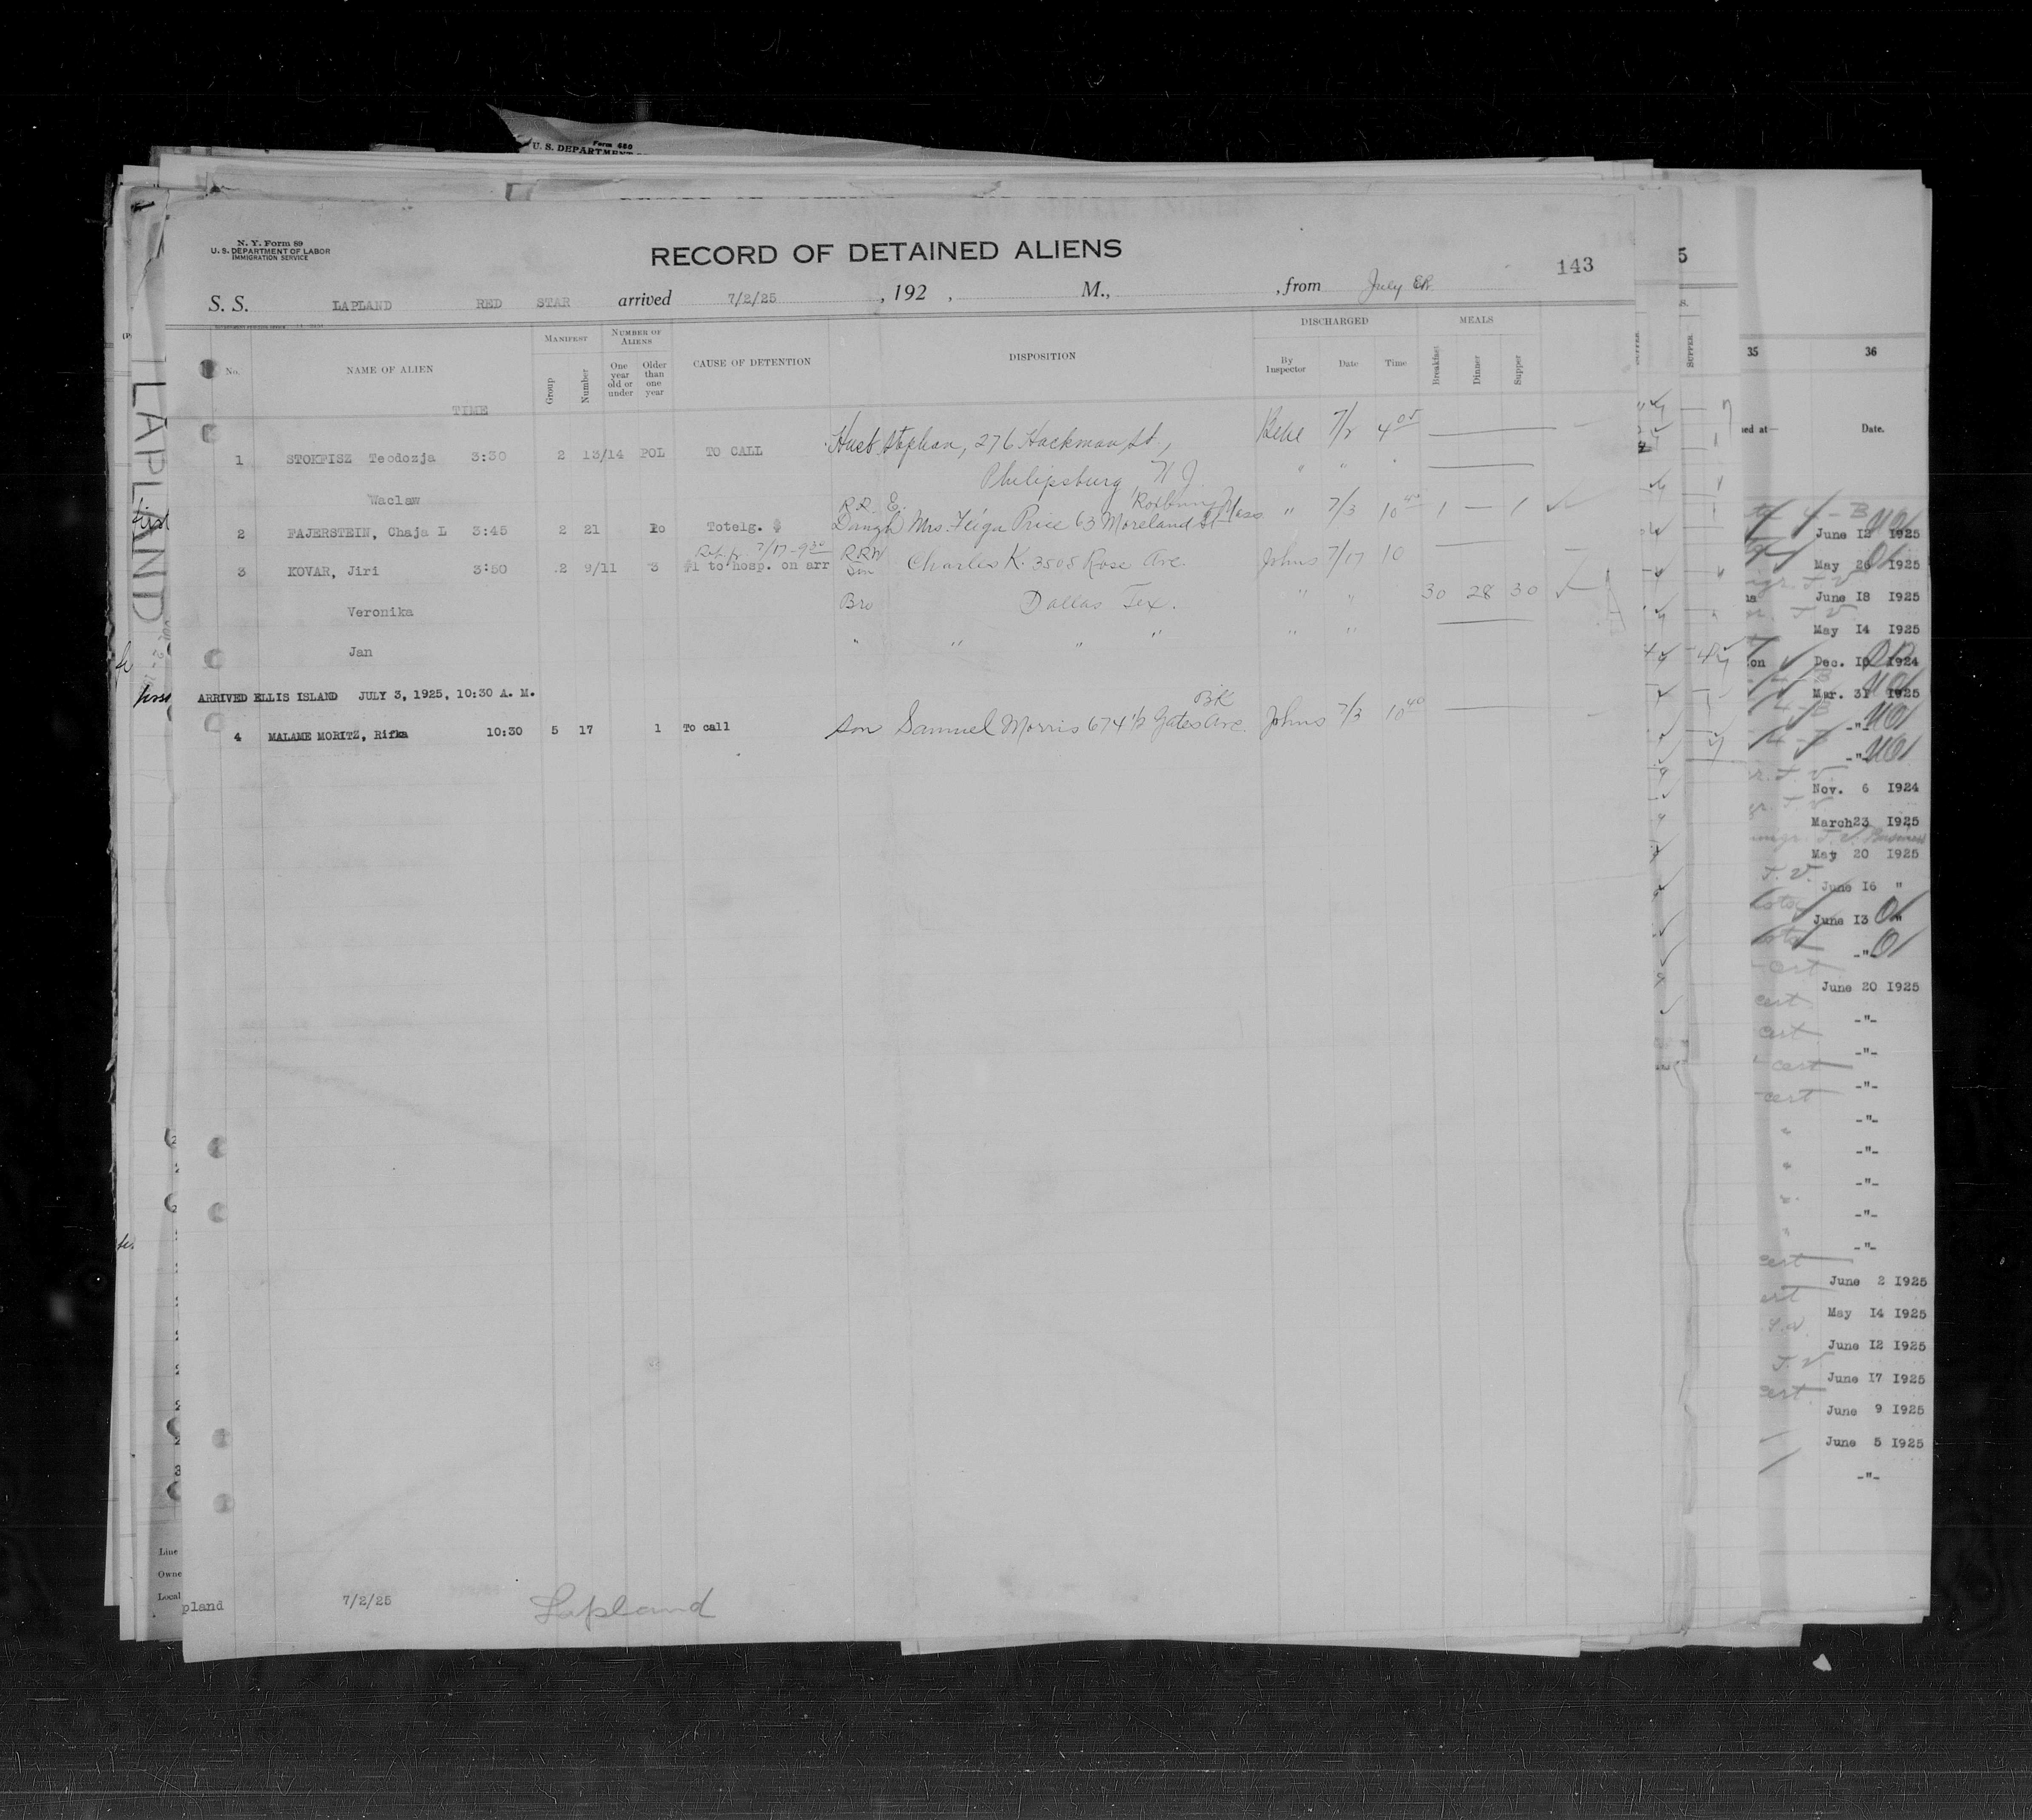 Form 680
U. S. DEPARTMENT
N. Y. Form 89
U. S. DEPARTMENT OF LABOR
IMMIGRATION SERVICE
RECORD OF DETAINED ALIENS
143
S. S. LAPLAND RED STAR arrived 7/2/25, 192 , M., , from July
No. NAME OF ALIEN MANIFEST NUMBER OF ALIENS CAUSE OF DETENTION DISPOSITION DISCHARGED MEALS
Group Number One year old or under Older than one year By Inspector Date Time Breakfast Dinner Supper
TIME
1 STOKFISZ Teodozja 3:30 2 13/14 POL TO CALL Husb Stephan, 276 Hackman St., 7/2 4 05
Philipsburg N J " "
Waclaw
R.R. E. Roxbury Mass
2 FAJERSTEIN, Chaja L 3:45 2 21 Totelg. $ Daugh Mrs. Feiga Price 63 Moreland St " 7/3 10 40 1 — 1
7/17 - 9 30 RRW
3 KOVAR, Jiri 3:50 2 9/11 3 #1 to hosp. on arr Son Charles K. 3508 Rose Ave. Johns 7/17 10
Bro Dallas Tex. " " 30 28 30
Veronika
" " " " " "
Jan
ARRIVED ELLIS ISLAND JULY 3, 1925, 10:30 A. M.
BK
4 MALAME MORITZ, Rifka 10:30 5 17 1 To call son Samuel Morris 674 1/2 Gates Ave. Johns 7/3 10 40
pland 7/2/25 Lapland
LAPLAND
first
Line
Owne
Local
5
SUPPER
35 36
ued at— Date.
June 12 1925
May 26 1925
June 18 1925
May 14 1925
Dec. 10 1924
Mar. 31 1925
-"-
-"-
Nov. 6 1924
March23 1925
May 20 1925
T. V. June 16 "
June 13 "
-"-
cert
cert June 20 1925
cert -"-
cert -"-
cert -"-
-"-
-"-
-"-
-"-
-"-
cert
June 2 1925
May 14 1925
June 12 1925
T. V June 17 1925
cert. June 9 1925
June 5 1925
-"-